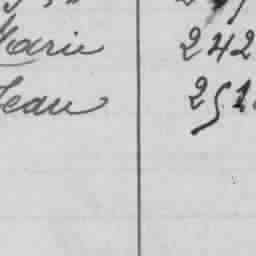 Marie 242
Jean 251